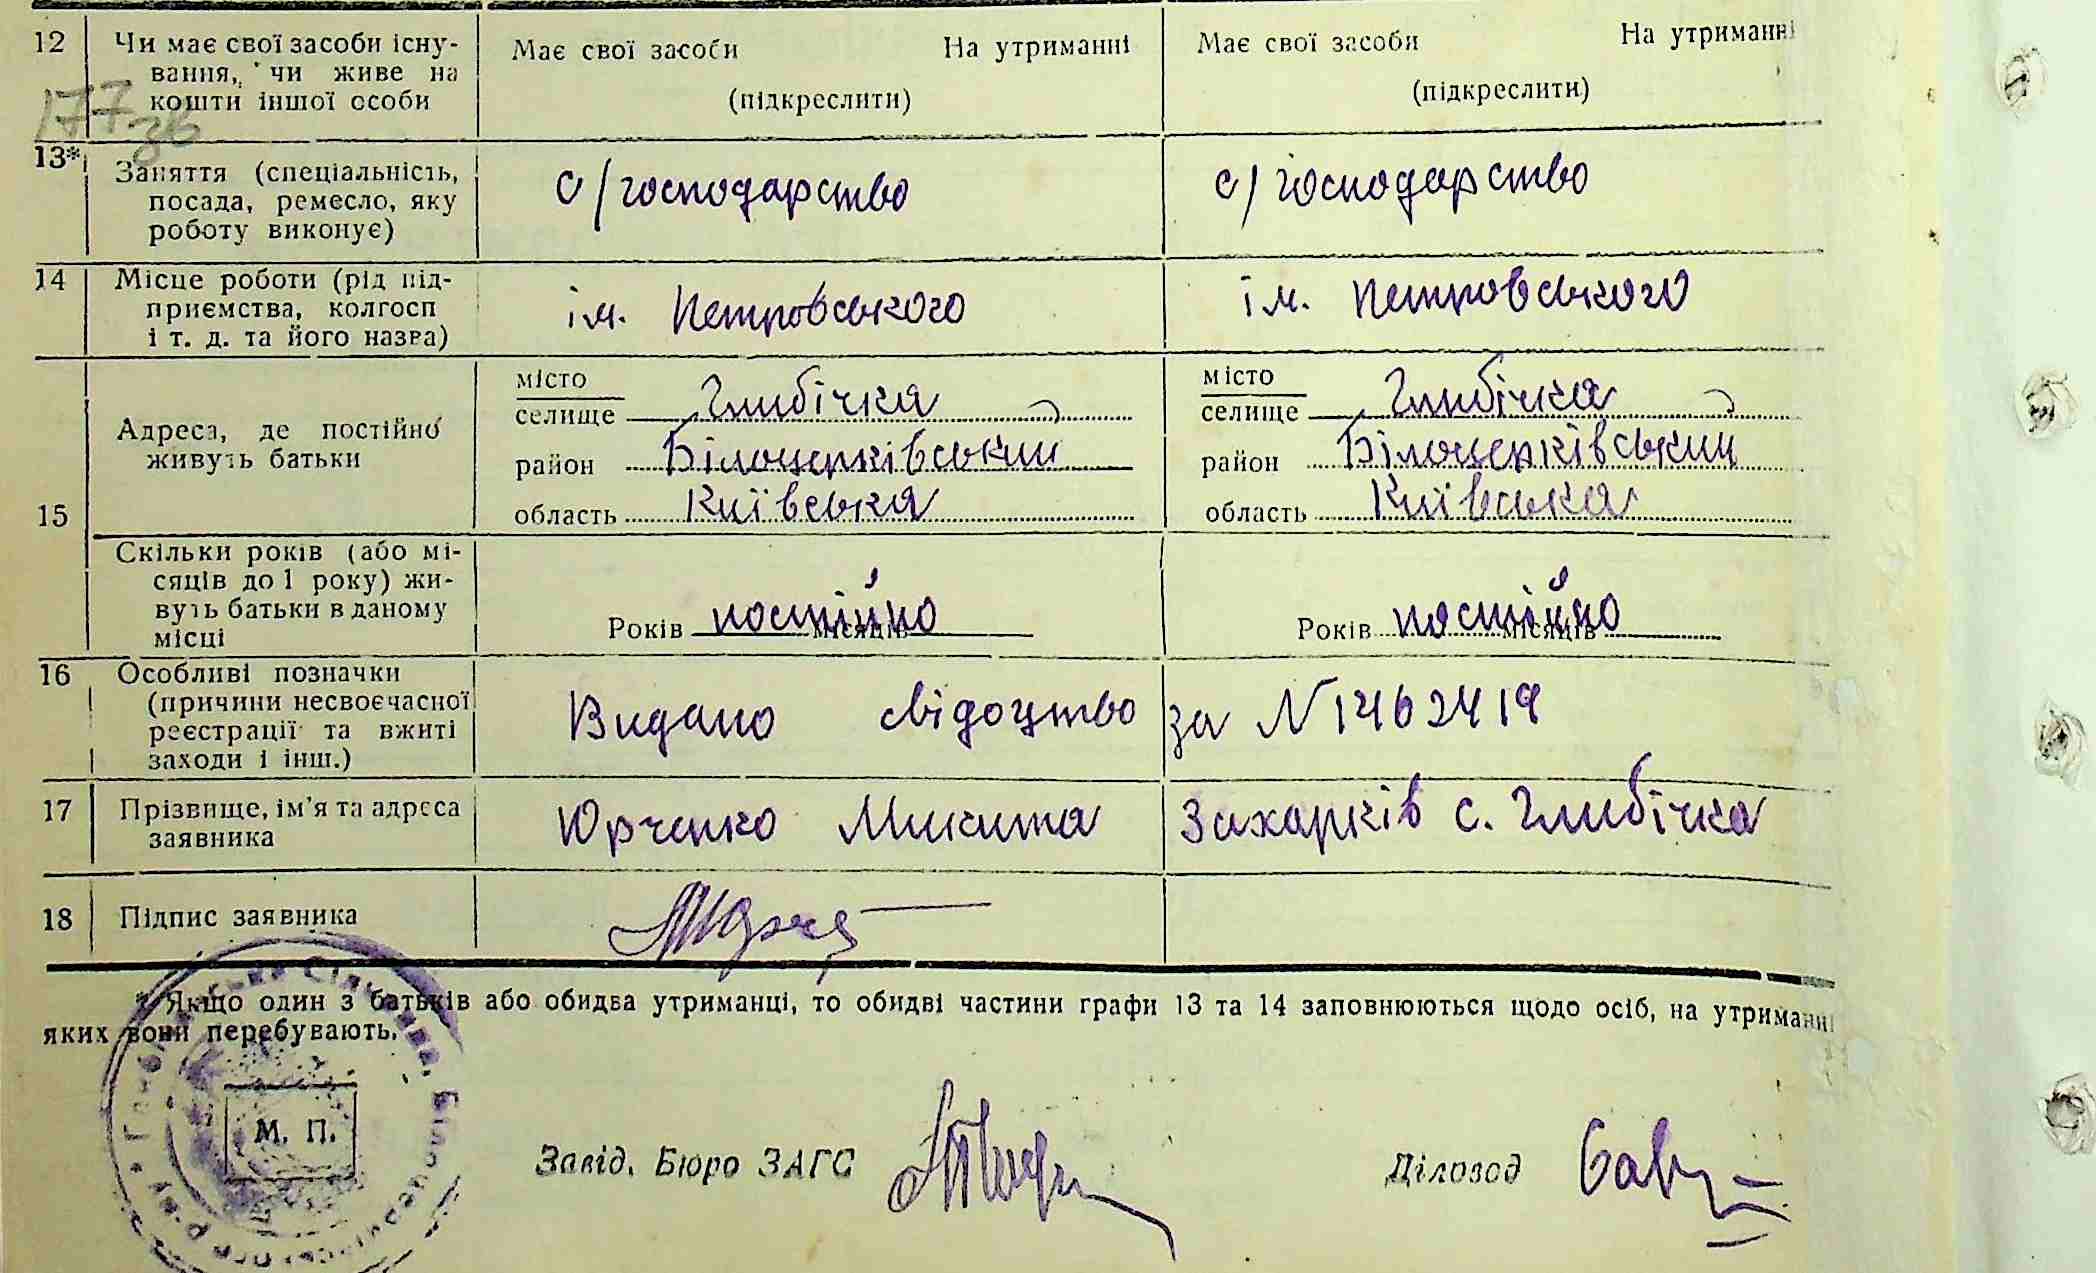 12 Чи має свої засоби існу- Має свої засоби На утриманні Має свої засоби На утриманні
вання, чи живе на
кошти іншої особи (підкреслити) (підкреслити)
177зв
13* Заняття (спеціальність, с/господарство с/господарство
посада, ремесло, яку
роботу виконує)
14 Місце роботи (рід під- ім. Петровського ім. Петровського
приємства, колгосп
і т. д. та його назва)
15 Адреса, де постійно
живуть батьки
місто місто
селище Глибічка селище Глибічка
район Білоцерківський район Білоцерківський
область Київська область Київська
Скільки років (або мі-
сяців до 1 року) жи-
вуть батьки в даному
місці Років постійно місяців Років постійно місяців
16 Особливі позначки
(причини несвоєчасної Видано свідоцтво за N 1462419
реєстрації та вжиті
заходи і інш.)
17 Прізвище, ім'я та адреса Юрченко Микита Захарків с. Глибічка
заявника
18 Підпис заявника
* Якщо один з батьків або обидва утриманці, то обидві частини графи 13 та 14 заповнюються щодо осіб, на утриманні
яких вони перебувають.
М. П.
Завід. Бюро ЗАГС Діловод